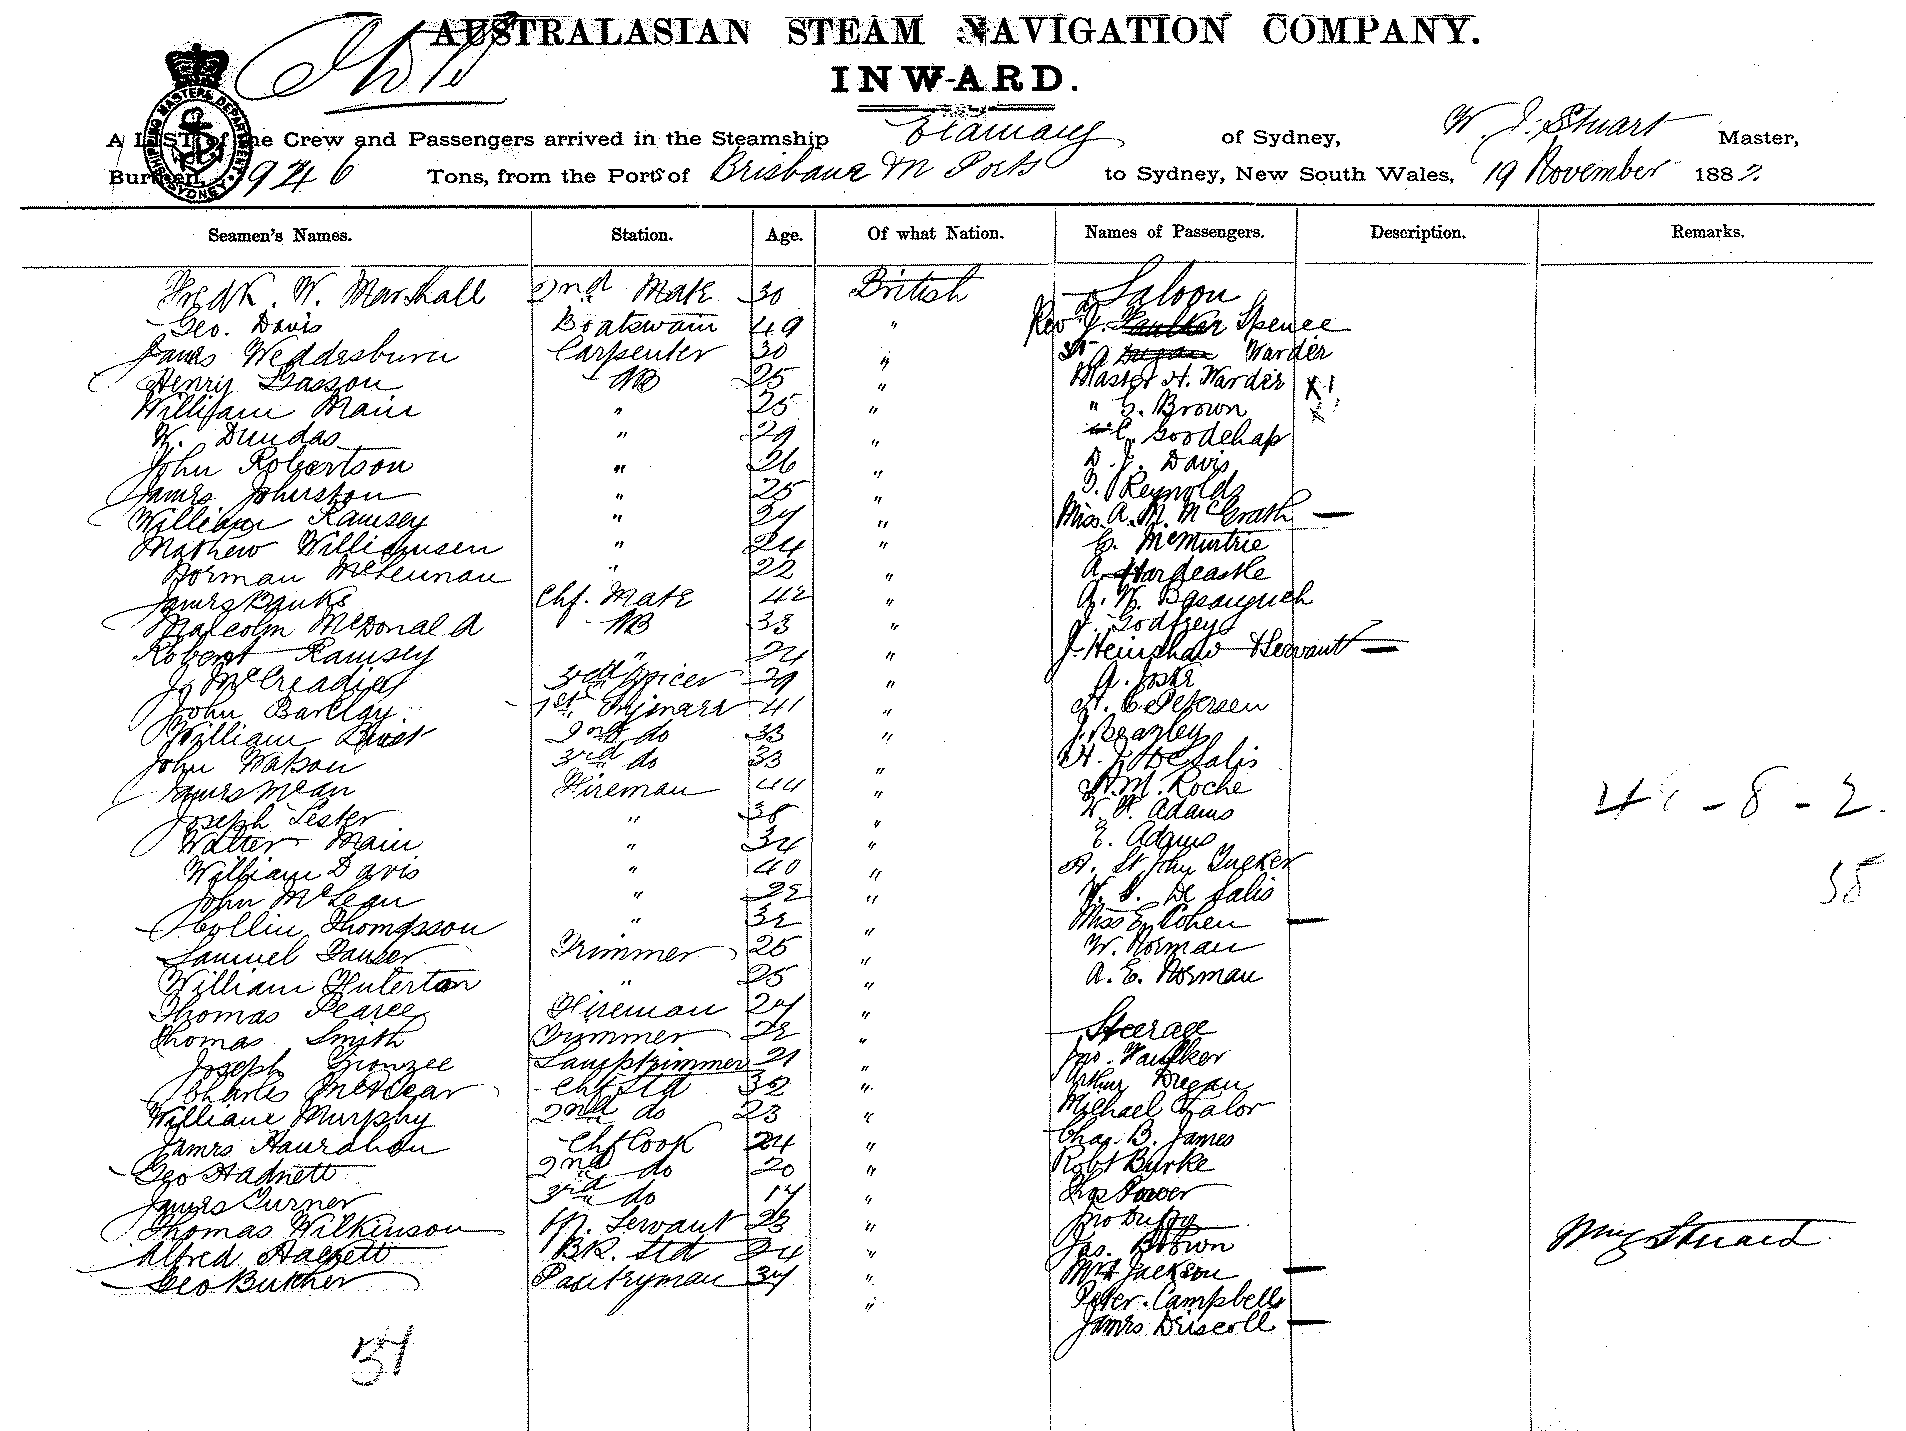 AUSTRALASIAN STEAM NAVIGATION COMPANY.
INWARD.
A LIST of the Crew and Passengers arrived in the Steamship Elamang of Sydney, W. J. Stuart Master,
Burthen, 924 6 Tons, from the Ports of Brisbane & M Ports to Sydney, New South Wales, 19 November 1882.
Seamen's Names. Station. Age. Of what Nation. Names of Passengers. Description. Remarks.
Fredk. W. Marshall 2nd Mate 30 British Saloon
Geo. Davis Boatswain 49 " Rev J. Spence
James Weddesburn Carpenter 30 " A Warder
Henry Gasson AB 25 " Master H. Warder
William Main " 25 " " G. Brown
W. Dundas " 29 " C. Goodchap
John Robertson " 26 " D. J. Davis
James Johnston " 25 " Reynolds
William Ramsey " 27 " Miss A. M. McGrath —
Mathew Williamsen " 24 " G. McMurtrie
Norman McLennan " 22 " A. Hardcastle
James Banks Chf. Mate 42 " A. W.
Malcolm McDonald AB 33 " J. Godfrey
Robert Ramsey " 24 " J. Heinshaw & Servant —
J. McCreadie 3rd Officer 29 " A. Joske
John Barclay 1st 41 " H. C. Petersen
William 2nd do 33 " J. Beazley
John Watson 3rd do 33 H. J. De Salis
James McAn Fireman 44 " H. M. Roche
Joseph Lester " 38 " W. F. Adams
Walter Main " 34 " E. Adams
William Davis " 40 " A. St John Tucker
John McLean " 22 " W. S. De Salis
Collin Thompson " 32 " Miss E. Cohen —
Samuel Trimmer 25 " W. Norman
William " 25 " A. E. Norman
Thomas Pearce Fireman 27 "
Thomas Smith Trimmer 22 " Steerage
Joseph Lamptrimmer 21 " Jno. Faulker
Charles Chf Std 32 " Arthur Dugan
William Murphy 2nd do 23 " Michael Lalor
James Hanrahan Chf Cook 24 " Chas. B. James
Geo Hadnett 2nd do 20 " Robt Burke
James Turner 3rd do 17 " Thos Power
Thomas Wilkinson M. Servant 23 " Jno Duffy
Alfred Hackett BK. Std 24 " Jas. Brown
Geo Butcher Pantryman 37 " Mrs Jackson —
" Peter Campbell
James Driscoll —
41 - 8 - 2.
58
Wm J Stuart
37